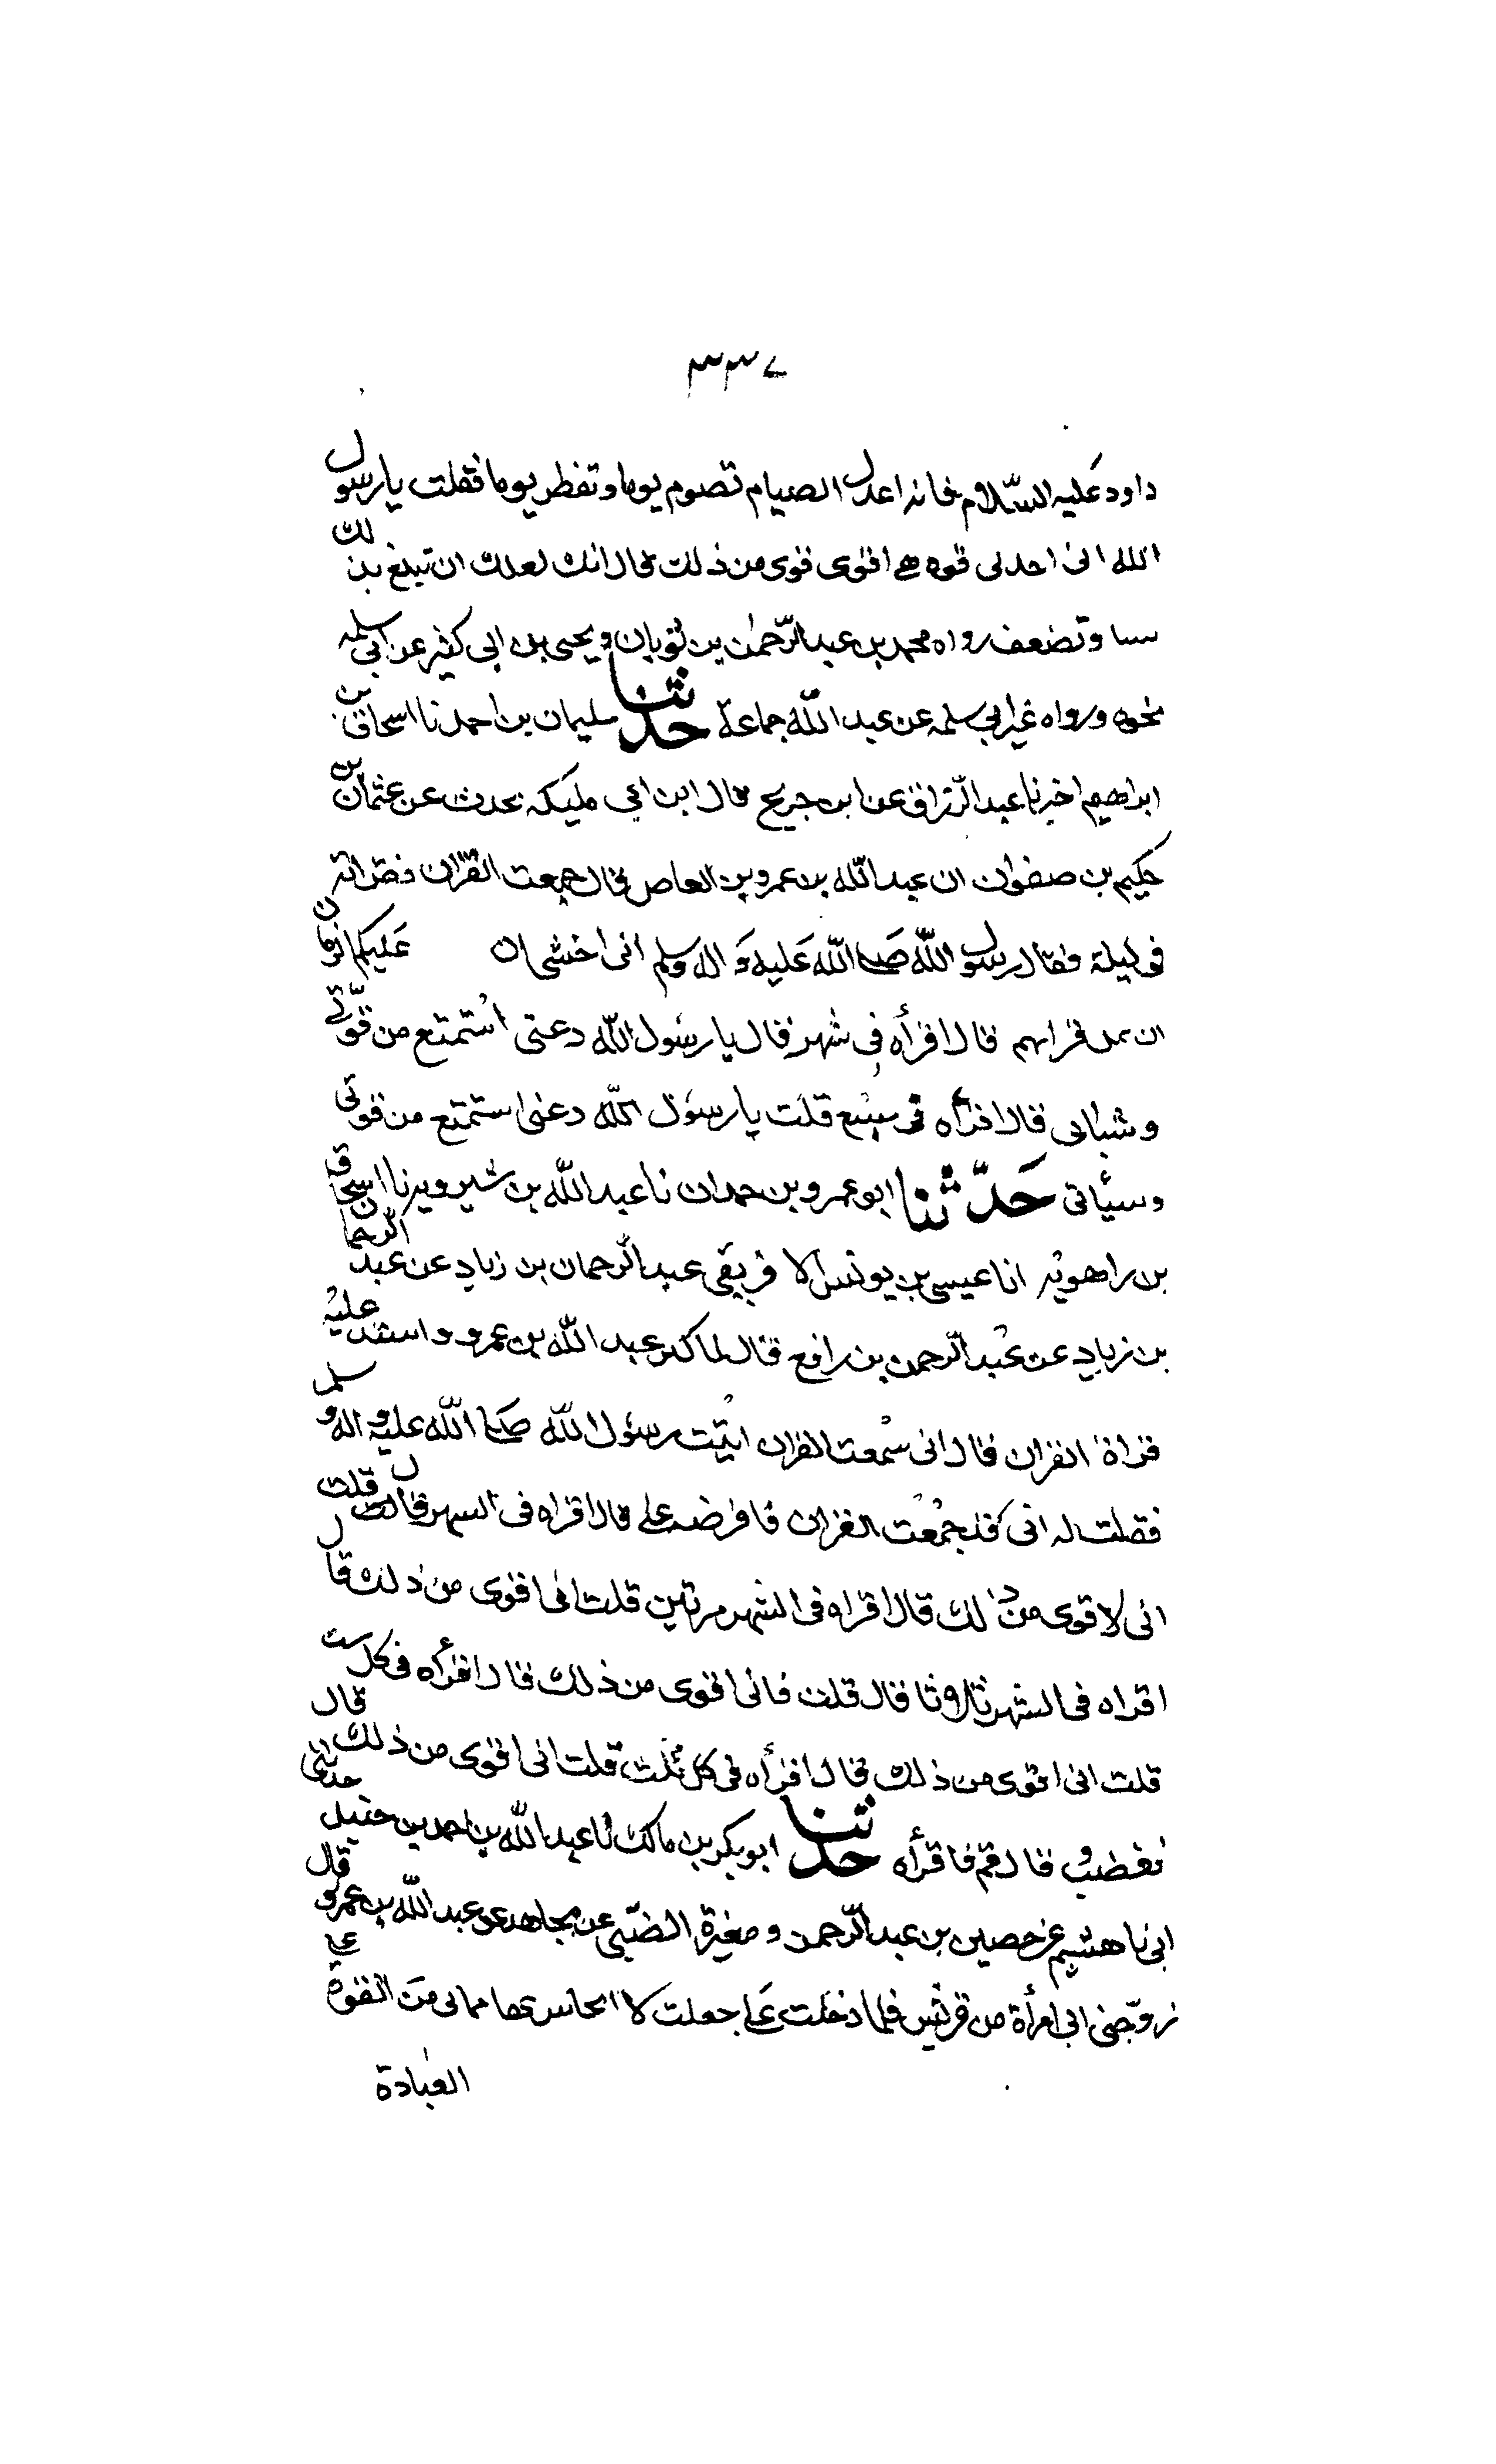 ٣٣٧
داود عليه السّلام فانه اعدل الصيام تصوم يوما وتفطر يوما فقلت يا رسول
الله انى اجد بى قوه هى اقوى قوى من ذلك قال انك لعلك ان تبلغ بذلك
سنا وتضعف رواه محمد بن عبد الرّحمٰن بن ثوبان ويحيى بن ابى كثير عن ابى سلمه
نحوه ورواه غير ابى سلمه عن عبد اللّٰه جماعة حدثنا سليمان بن احمد نا اسحاق بن
ابراهيم اخبرنا عبد الرّزاق عن ابن جريج قال ابن ابى مليكه يحدث عن عثمان بن
حكيم بن صفوان ان عبد اللّٰه بن عمرو بن العاص قال جمعت القرآن فقراته
فى ليلة فقال رسول اللّٰه صَلى اللّٰه عَليه وَ اله وسلم انى اخشى ان عَليكم ازمان
ان عمل قراتهم قال اقرأه فى شهر فقال يا رسُول اللّٰه دعنى استمتع من قوّتى
وشبابى قال اقرأه فى سبع قلت يا رسُول اللّٰه دعنى استمتع من قوتى
وسئاتى حَدّثنا ابو عمرو بن حمدان نا عبد اللّٰه بن شيرويه نا اسحاق
بن راهويه انا عيسى بن يونس الافريقى عبد الرحمان بن زياد عن عبد الرحمان
بن زياد عن عبد الرّحمن بن رافع قال لما كبر عبد اللّٰه بن عمرو واشتد عليه
قراة القران قال انى سمعت القران اتيت رسول اللّٰه صَلى اللّٰه عليه واله وسلم
فقلت له انى قد جمعت القران فافرضه على قال اقراه فى الشهر قال قلت
انى لاقوى من ذلك قال اقراه فى الشهر مرتين قلت انى اقوى من ذلك قال
اقراه فى الشهر ثلاثا قال قلت فانى اقوى من ذلك قال اقرأه فى كل ست
قلت انى اقوى من ذلك قال اقرأه فى كل ثلث قلت انى اقوى من ذلك قال
فغضب و قال قم فاقرأه حدثنا ابو بكر بن مالك نا عبد اللّٰه بن احمد بن حنبل حدثنى
ابى نا هشيم عن حصين بن عبد الرّحمن و مغيرة الضبّى عن مجاهد عن عبد اللّٰه بن عمرو قال
زوّجنى ابى امرأة من قريش فلما دخلت عَلى جعلت لا انحاس لها مما بى من القوة على
العبادة